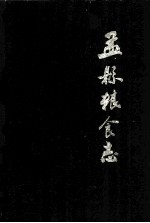 孟县粮食志